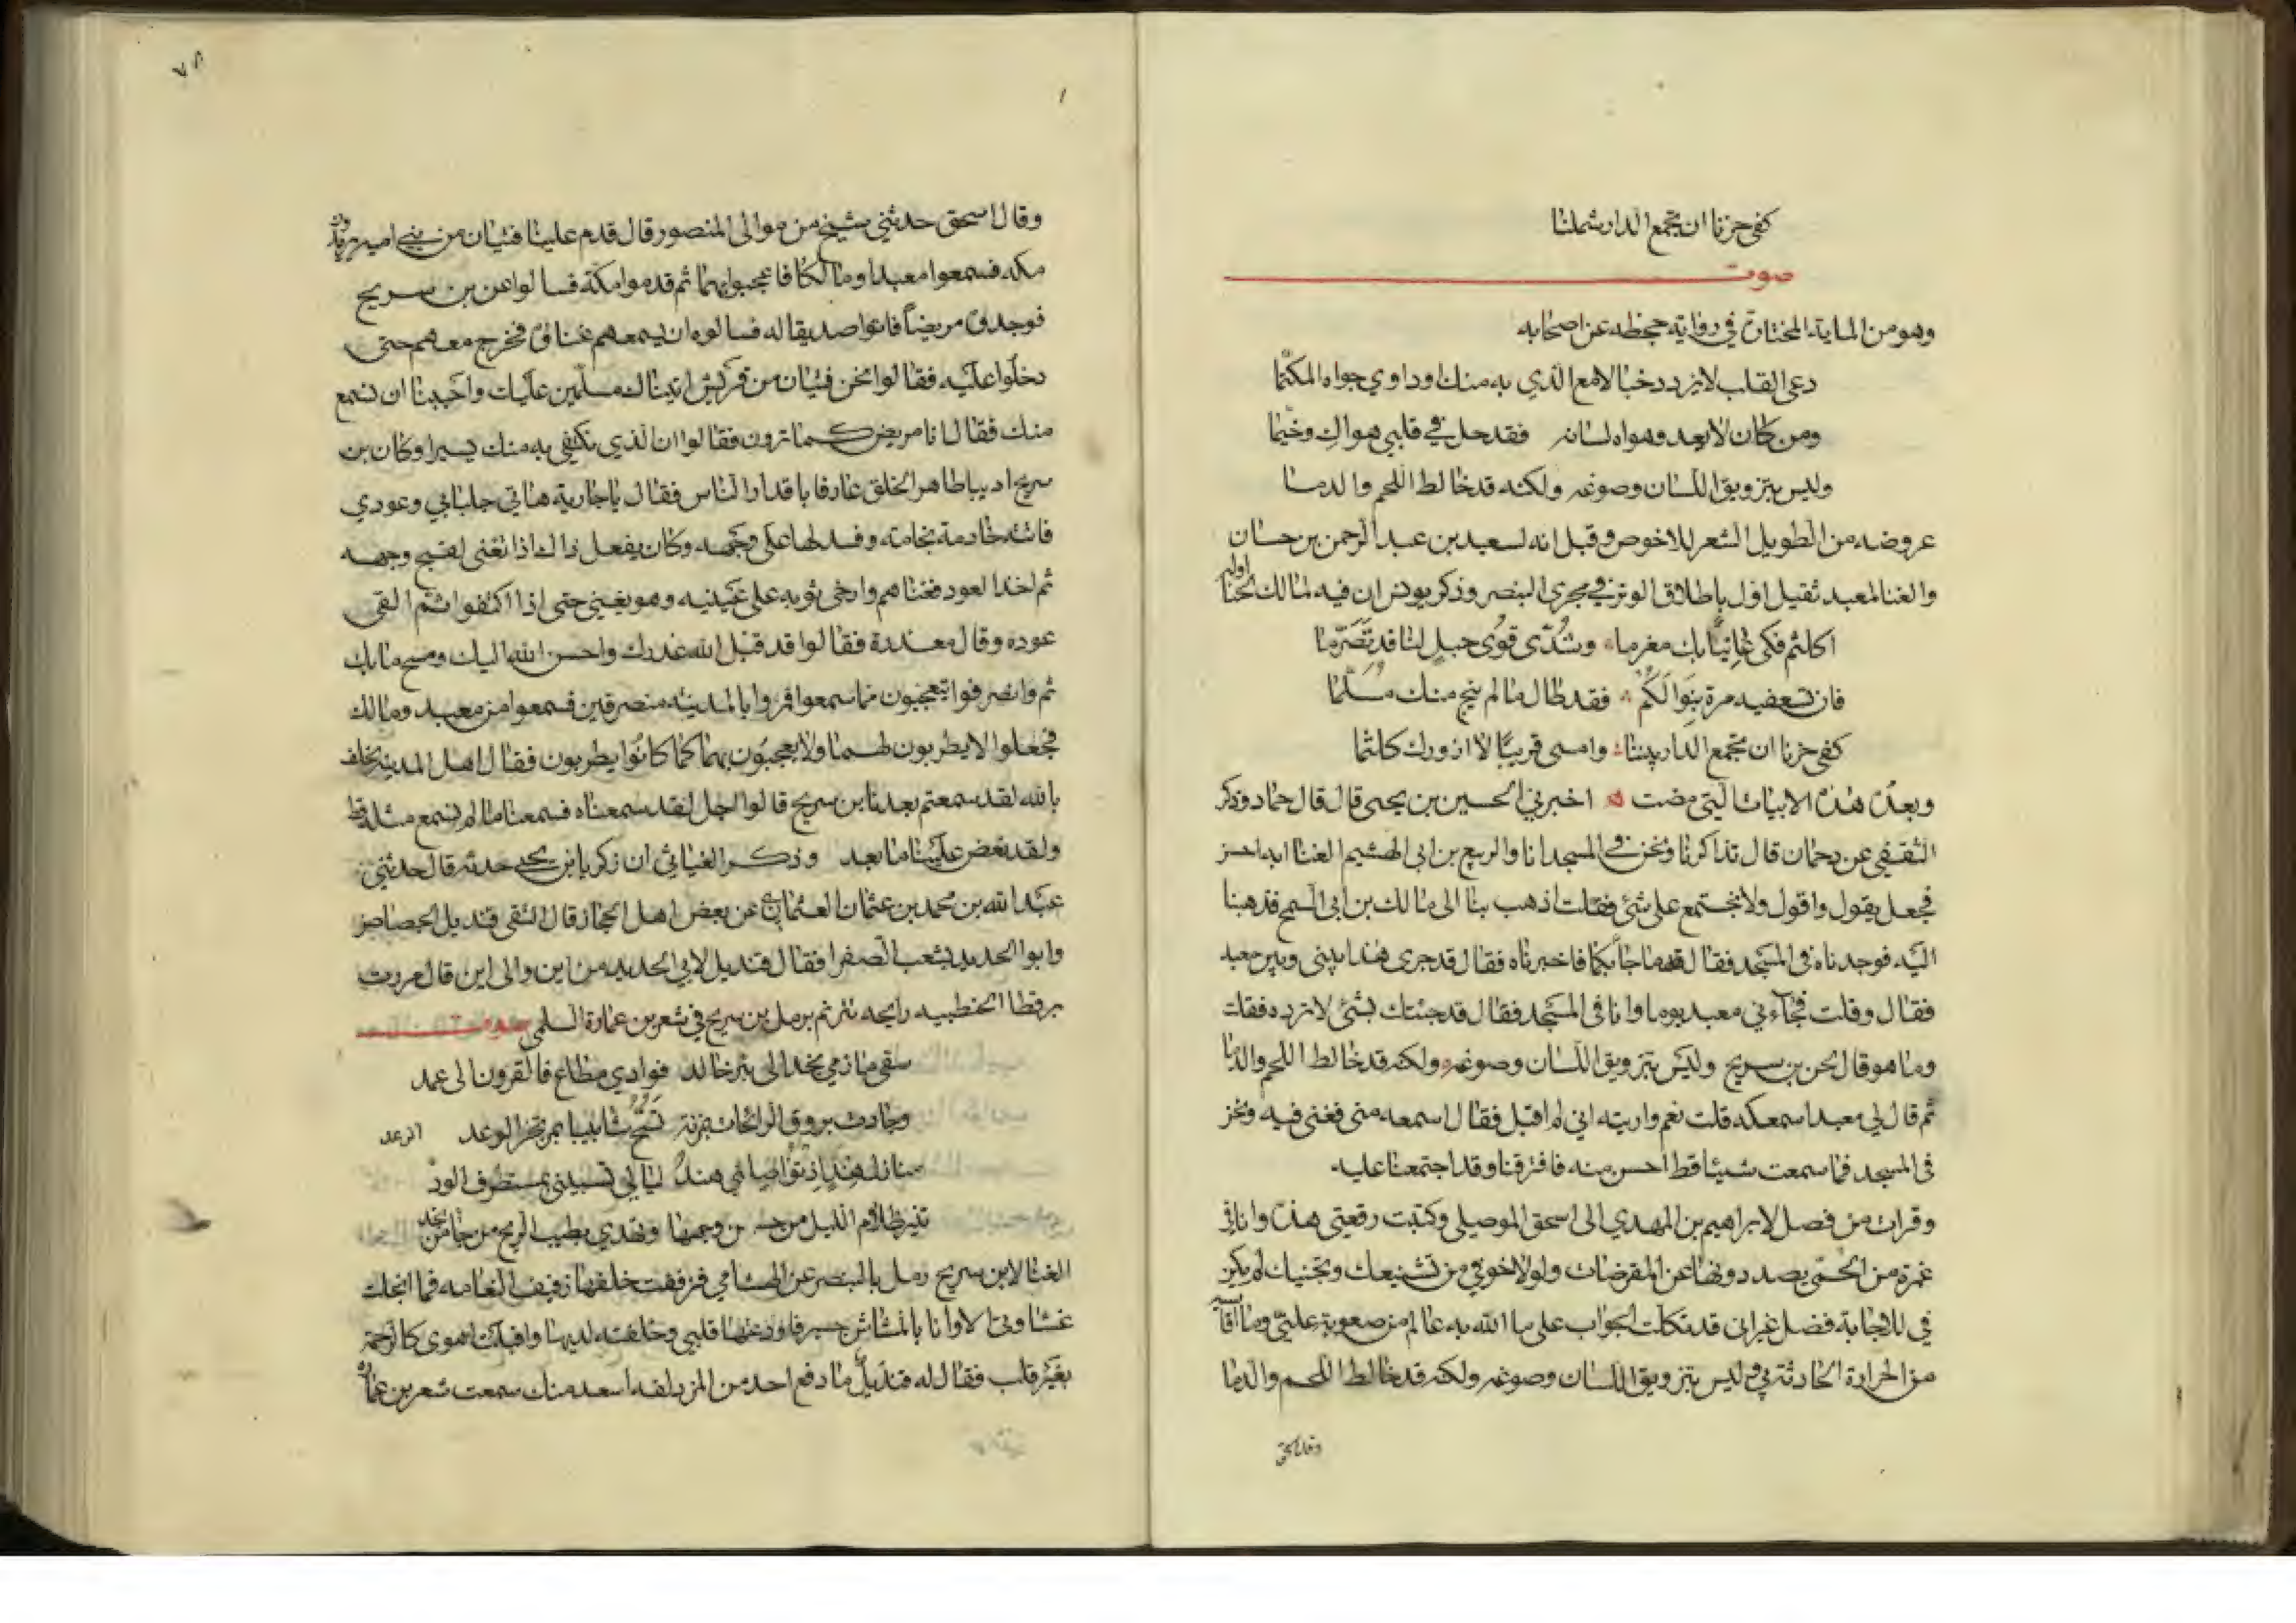 كفى حزنا ان تجمع الدار شملنا
صوت
وهو من الماية المختارة في رواية جحظه عن اصحابه
دعى القلب لا يزدد خبالا مع الذي به منك او داوي جواه المكتما
ومن كان لا يعد وهواه لسانه فقد حل في قلبي هواك وخيما
وليس بتزويق اللسان وصوغه ولكنه قد خالط اللحم والدما
عروضه من الطويل الشعر للاخوص وقيل انه لسعيد بن عبد الرحمن بن حسان
والغنا لمعبد ثقيل اول باطلاق الوتر في مجرى البنصر وذكر يونس ان فيه لمالك لحنا اوله
اكلثم فكي عانيا بك مغرما وشدي قوى حبل لنا قد تصرما
فان تسعفيه مرة بنوالكم فقد طال ما لم ينج منك مسلما
كفى حزنا ان تجمع الدار بيننا وامسى قريبا لا ازورك كلثما
وبعده هذه الابيات التي مضت اخبرني الحسين بن يحيى قال قال حماد وذكر
الثقفي عن دحمان قال تذاكرنا ونحن في المسجد انا والربيع بن ابي الهشيم الغنا ايه احسن
فجعل يقول واقول ولا نجتمع على شئ فقلت اذهب بنا الى مالك بن ابي السمح فذهبنا
اليه فوجدناه في المسجد فقال لهما جأ بكما فاخبرناه فقال قد جرى هذا بيني وبين معبد
فقال وقلت فجآءني معبد يوما وانا في المسجد فقال قد جئتك بشئ لا ترده فقلت
وما هو قال لحن بن سريج وليس بتزويق اللسان وصوغه ولكنه قد خالط اللحم والدما
ثم قال لي معبد اسمعكه قلت نعم واريته اني لم اقبل فقال اسمعه مني فغنى فيه ونحن
في المسجد فما سمعت شيئا قط احسن منه فافترقنا وقد اجتمعنا عليه
وقرات من فصل لابراهيم بن المهدي الى اسحق الموصلي وكتبت رقعتي هذه وانا في
غمرة من الحمى يصد دونها عن المفرضات ولولا خوفي من تشنيعك وتجنيك لم يكن
في للاجابة فضل غير اني قد تكلت الجواب على ما الله به عالم من صعوبة علتي وما اقاسيه
من الحرارة الحادثة بي وليس بتزويق اللسان وصوغه ولكنه قد خالط اللحم والدما
وقال اسحق
وقال اسحق حدثني شيخ من موالى المنصور قال قدم علينا فتيان من بني اميه يريدون
مكه فسمعوا معبدا ومالكا فاعجبوا بهما ثم قدموا مكة فسالوا عن بن سريج
فوجدوه مريضا فاتوا صديقا له فسالوه ان يسمعهم غناؤه فخرج معهم حتى
دخلوا عليه فقالوا نحن فتيان من قريش اتيناك مسلمين عليك واحببنا ان نسمع
منك فقال انا مريض كما ترون فقالوا ان الذي نكتفي به منك يسيرا وكان بن
سريج اديبا طاهر الخلق عارفا باقدار الناس فقال يا جارية هاتي جلبابي وعودي
فاتته خادمة بخامة وفسدلها على وجهه وكان يفعل ذالك اذا تغنى لقبح وجهه
ثم اخذ العود فغناهم وارخى ثوبه على عينيه وهو يغني حتى اذا اكتفوا ثم القى
عوده وقال معذرة فقالوا قد قبل الله عذرك واحسن الله اليك ومسح ما بك
ثم وانصرفوا يتعجبون مما سمعوا فمروا بالمدينه منصرفين فسمعوا من معبد ومالك
فجعلوا لا يطربون لهما ولا يعجبون بهما كما كانوا يطربون فقال اهل المدينه نحلف
بالله لقد سمعتم بعدنا بن سريج قالوا اجل لقد سمعناه فسمعنا ما لم نسمع مثله قط
ولقد نغص علينا ما بعد وذكر الغياثي ان زكريا بن يحيى حدثه قال حدثني
عبد الله بن محمد بن عثمان العثماني عن بعض اهل الحجاز قال التقى قنديل الجصاص
وابو الحديد بشعب الصفرا فقال قنديل لابي الحديد من اين والى اين قال مررت
برقطا الحنطبيه رايحه تترنم برمل بن سريج في شعر بن عمارة السلمي صوت
سقى مازمي نجد الى بئر خالد فوادي مطاع فالقرون الى عمد
وجادت بروق الرائحات بمزنة تسح شابيبا بمرتجز الوعد الرعد
منازل هند اذ تواصاني هند ليالي تسبيني بمستطرف الود
تنير ظلام الليل من حسن وجهها وتهدي بطيب الريح من جا من نجد
الغنا لابن سريج رمل بالبنصر عن الهشامي فزففت خلفها زفيف النعامه فما انجلت
غشاوتي الا وانا بالمشاش حسير فاودعتها قلبي وخلفته لديها واقبلت اهوى كالرخمة
بغير قلب فقال له قنديل ما دفع احد من المزدلفه اسعد منك سمعت شعر بن عمارة